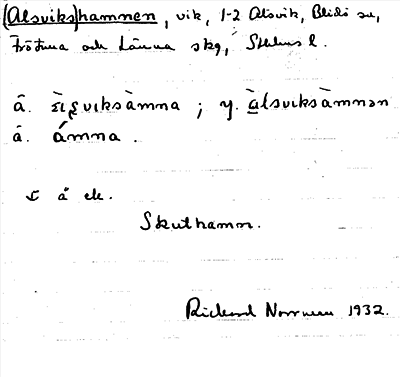 (Alsviks)hammen, vik, 1-2 Alsvik, Blidö sn,
Frötuna och Länna skg, Sthlms l.
â. ; y. àlsvıksàmnən
â. ámna.
å ek.
Skuthamn.
Rickard Norrmen 1932.